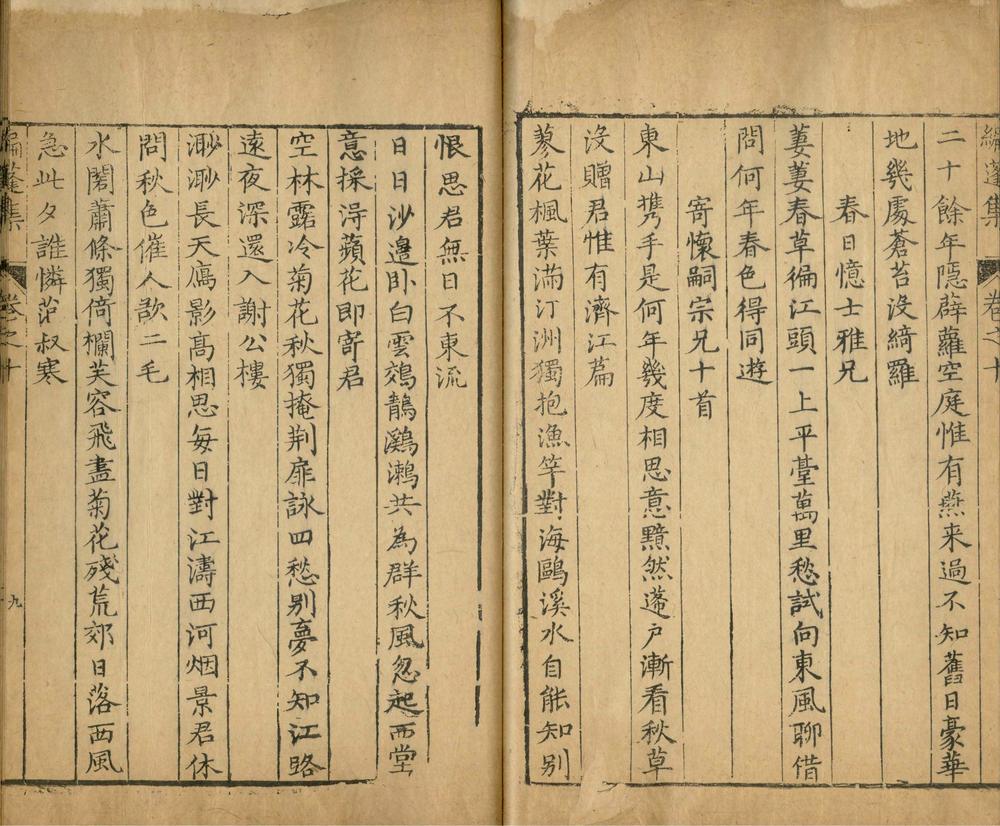 編蓬集 卷之十
二十餘年隱薜蘿空庭惟有燕来過不知舊日豪華
地幾處蒼苔沒綺羅
春日憶士雅兄
萋萋春草徧江頭一上平臺萬里愁試向東風聊借
問何年春色得同遊
寄懷嗣宗兄十首
東山携手是何年幾度相思意黯然蓬户漸看秋草
沒贈君惟有濟江篇
蓼花楓葉滿汀洲獨抱漁竿對海鷗溪水自能知别
恨思君無日不東流
日日沙邉卧白雲鵁鶄鸂鷘共為群秋風忽起西堂
意採得蘋花即寄君
空林露冷菊花秋獨掩荆扉詠四愁别夢不知江路
遠夜深還入謝公樓
渺渺長天鴈影高相思每日對江濤西河烟景君休
問秋色催人欲二毛
水閣蕭條獨倚欄芙容飛盡菊花殘荒郊日落西風
急此夕誰憐范叔寒
編蓬集 卷之十 九